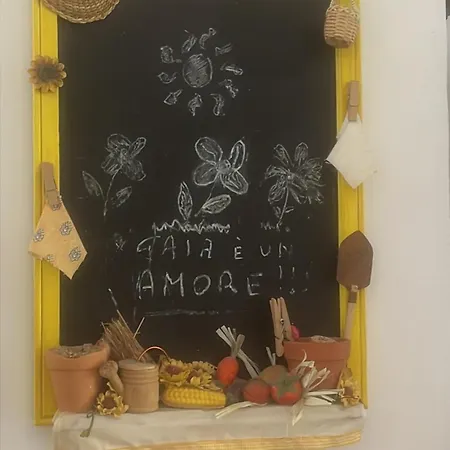 GAIA È UN
AMORE!!!